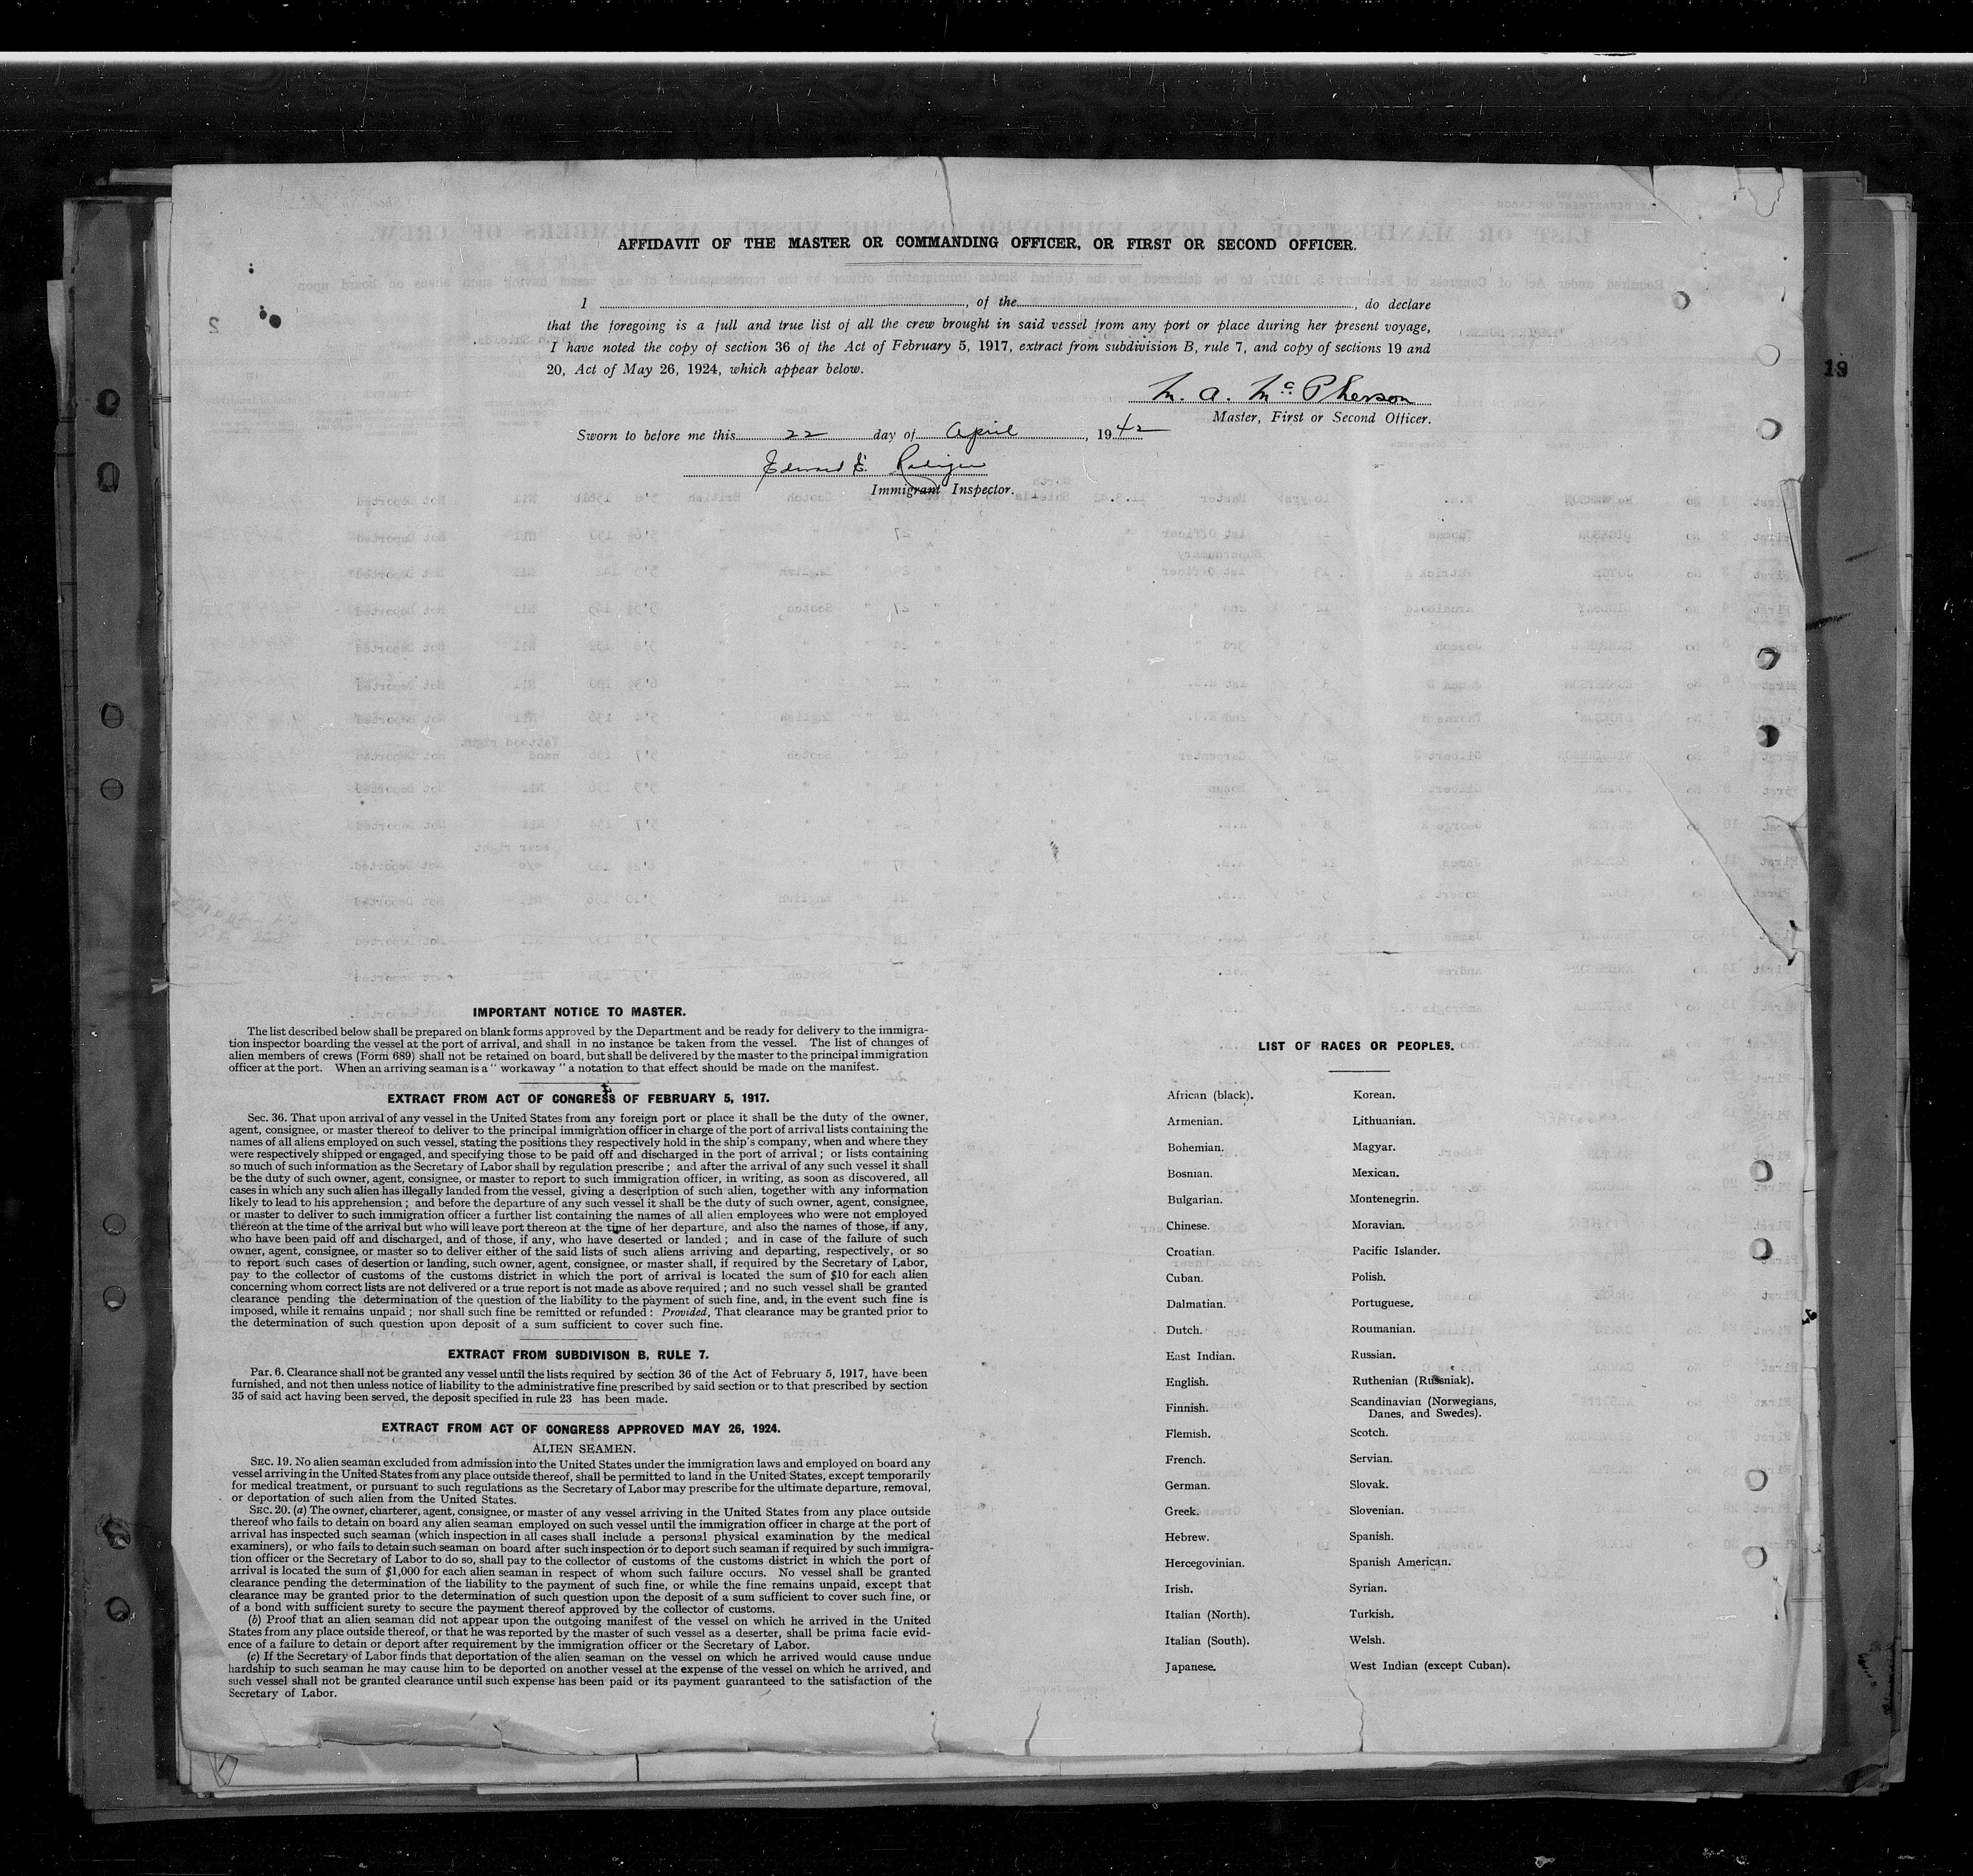 AFFIDAVIT OF THE MASTER OR COMMANDING OFFICER, OR FIRST OR SECOND OFFICER.
I , of the , do declare
that the foregoing is a full and true list of all the crew brought in said vessel from any port or place during her present voyage,
I have noted the copy of section 36 of the Act of February 5, 1917, extract from subdivision B, rule 7, and copy of sections 19 and
20, Act of May 26, 1924, which appear below.
M. A. McPherson
Master, First or Second Officer.
Sworn to before me this 22 day of April , 1942
Edward E.
Immigrant Inspector.
19
IMPORTANT NOTICE TO MASTER.
The list described below shall be prepared on blank forms approved by the Department and be ready for delivery to the immigra-
tion inspector boarding the vessel at the port of arrival, and shall in no instance be taken from the vessel. The list of changes of
alien members of crews (Form 689) shall not be retained on board, but shall be delivered by the master to the principal immigration
officer at the port. When an arriving seaman is a " workaway " a notation to that effect should be made on the manifest.
EXTRACT FROM ACT OF CONGRESS OF FEBRUARY 5, 1917.
Sec. 36. That upon arrival of any vessel in the United States from any foreign port or place it shall be the duty of the owner,
agent, consignee, or master thereof to deliver to the principal immigration officer in charge of the port of arrival lists containing the
names of all aliens employed on such vessel, stating the positions they respectively hold in the ship's company, when and where they
were respectively shipped or engaged, and specifying those to be paid off and discharged in the port of arrival ; or lists containing
so much of such information as the Secretary of Labor shall by regulation prescribe ; and after the arrival of any such vessel it shall
be the duty of such owner, agent, consignee, or master to report to such immigration officer, in writing, as soon as discovered, all
cases in which any such alien has illegally landed from the vessel, giving a description of such alien, together with any information
likely to lead to his apprehension ; and before the departure of any such vessel it shall be the duty of such owner, agent, consignee,
or master to deliver to such immigration officer a further list containing the names of all alien employees who were not employed
thereon at the time of the arrival but who will leave port thereon at the time of her departure, and also the names of those, if any,
who have been paid off and discharged, and of those, if any, who have deserted or landed ; and in case of the failure of such
owner, agent, consignee, or master so to deliver either of the said lists of such aliens arriving and departing, respectively, or so
to report such cases of desertion or landing, such owner, agent, consignee, or master shall, if required by the Secretary of Labor,
pay to the collector of customs of the customs district in which the port of arrival is located the sum of $10 for each alien
concerning whom correct lists are not delivered or a true report is not made as above required ; and no such vessel shall be granted
clearance pending the determination of the question of the liability to the payment of such fine, and, in the event such fine is
imposed, while it remains unpaid ; nor shall such fine be remitted or refunded : Provided, That clearance may be granted prior to
the determination of such question upon deposit of a sum sufficient to cover such fine.
EXTRACT FROM SUBDIVISON B, RULE 7.
Par. 6. Clearance shall not be granted any vessel until the lists required by section 36 of the Act of February 5, 1917, have been
furnished, and not then unless notice of liability to the administrative fine prescribed by said section or to that prescribed by section
35 of said act having been served, the deposit specified in rule 23 has been made.
EXTRACT FROM ACT OF CONGRESS APPROVED MAY 26, 1924.
ALIEN SEAMEN.
SEC. 19. No alien seaman excluded from admission into the United States under the immigration laws and employed on board any
vessel arriving in the United States from any place outside thereof, shall be permitted to land in the United States, except temporarily
for medical treatment, or pursuant to such regulations as the Secretary of Labor may prescribe for the ultimate departure, removal,
or deportation of such alien from the United States.
SEC. 20. (a) The owner, charterer, agent, consignee, or master of any vessel arriving in the United States from any place outside
thereof who fails to detain on board any alien seaman employed on such vessel until the immigration officer in charge at the port of
arrival has inspected such seaman (which inspection in all cases shall include a personal physical examination by the medical
examiners), or who fails to detain such seaman on board after such inspection or to deport such seaman if required by such immigra-
tion officer or the Secretary of Labor to do so, shall pay to the collector of customs of the customs district in which the port of
arrival is located the sum of $1,000 for each alien seaman in respect of whom such failure occurs. No vessel shall be granted
clearance pending the determination of the liability to the payment of such fine, or while the fine remains unpaid, except that
clearance may be granted prior to the determination of such question upon the deposit of a sum sufficient to cover such fine, or
of a bond with sufficient surety to secure the payment thereof approved by the collector of customs.
(b) Proof that an alien seaman did not appear upon the outgoing manifest of the vessel on which he arrived in the United
States from any place outside thereof, or that he was reported by the master of such vessel as a deserter, shall be prima facie evid-
ence of a failure to detain or deport after requirement by the immigration officer or the Secretary of Labor.
(c) If the Secretary of Labor finds that deportation of the alien seaman on the vessel on which he arrived would cause undue
hardship to such seaman he may cause him to be deported on another vessel at the expense of the vessel on which he arrived, and
such vessel shall not be granted clearance until such expense has been paid or its payment guaranteed to the satisfaction of the
Secretary of Labor.
LIST OF RACES OR PEOPLES.
African (black).
Armenian.
Bohemian.
Bosnian.
Bulgarian.
Chinese.
Croatian.
Cuban.
Dalmatian.
Dutch.
East Indian.
English.
Finnish.
Flemish.
French.
German.
Greek.
Hebrew.
Hercegovinian.
Irish.
Italian (North).
Italian (South).
Japanese.
Korean.
Lithuanian.
Magyar.
Mexican.
Montenegrin.
Moravian.
Pacific Islander.
Polish.
Portuguese.
Roumanian.
Russian.
Ruthenian (Russniak).
Scandinavian (Norwegians,
Danes, and Swedes).
Scotch.
Servian.
Slovak.
Slovenian.
Spanish.
Spanish American.
Syrian.
Turkish.
Welsh.
West Indian (except Cuban).